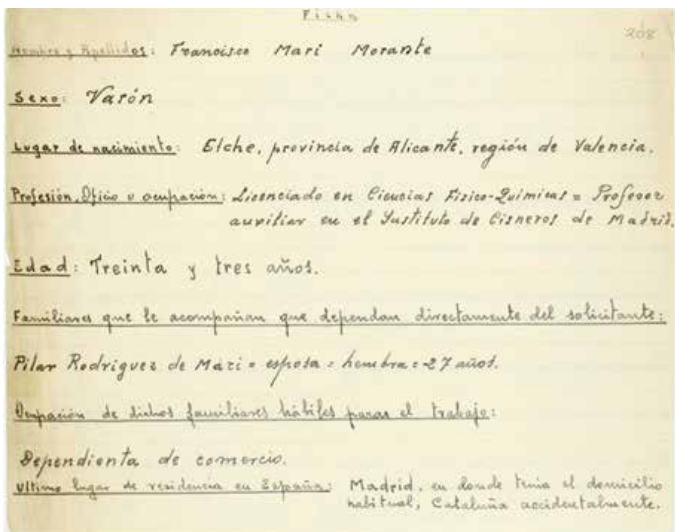 Ficha
208
Nombre y Apellidos: Francisco Mari Morante
Sexo: Varón
Lugar de nacimiento: Elche, provincia de Alicante, región de Valencia.
Profesión, Oficio u ocupación: Licenciado en Ciencias Físico-Químicas = Profesor
auxiliar en el Instituto de Cisneros de Madrid.
Edad: Treinta y tres años.
Familiares que le acompañan que dependan directamente del solicitante:
Pilar Rodriguez de Mari = esposa = hembra = 27 años.
Ocupación de dichos familiares hábiles para el trabajo:
Dependienta de comercio.
Ultimo lugar de residencia en España: Madrid, en donde tenia el domicilio
habitual, Cataluña accidentalmente.